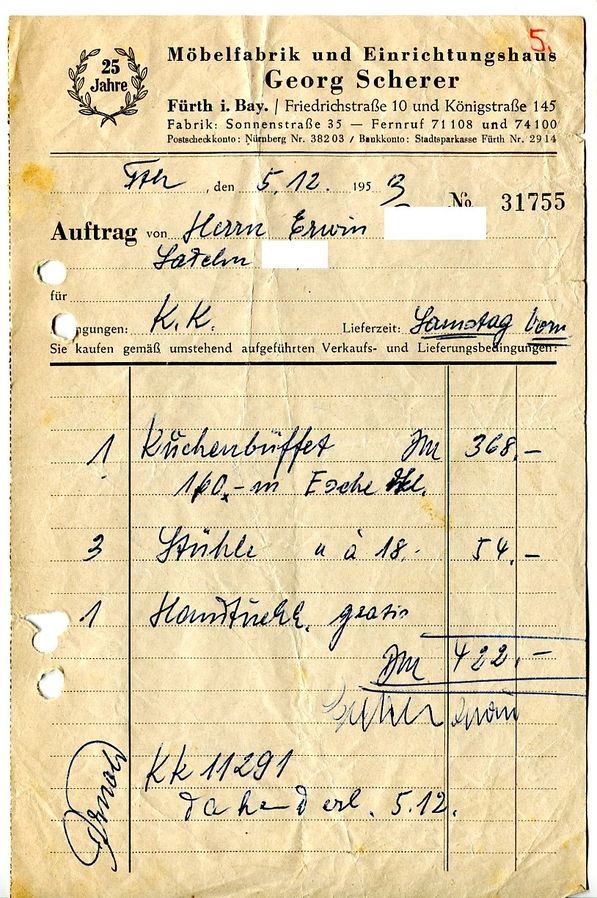 5.
25 Jahre
Möbelfabrik und Einrichtungshaus
Georg Scherer
Fürth i. Bay. / Friedrichstraße 10 und Königstraße 145
Fabrik: Sonnenstraße 35 — Fernruf 71108 und 74100
Postscheckkonto: Nürnberg Nr. 38203 / Bankkonto: Stadtsparkasse Fürth Nr. 2914
Fth , den 5.12. 1953
No 31755
Auftrag von Herrn Erwin
für
ngungen: K.K. Lieferzeit: Samstag Vorm
Sie kaufen gemäß umstehend aufgeführten Verkaufs- und Lieferungsbedingungen:
1 Küchenbüffet DM 368,-
160,- m Esche
3 Stühle " à 18.- 54,-
1 Handtuchh. gratis
DM 422,-
KK 11291
5.12.